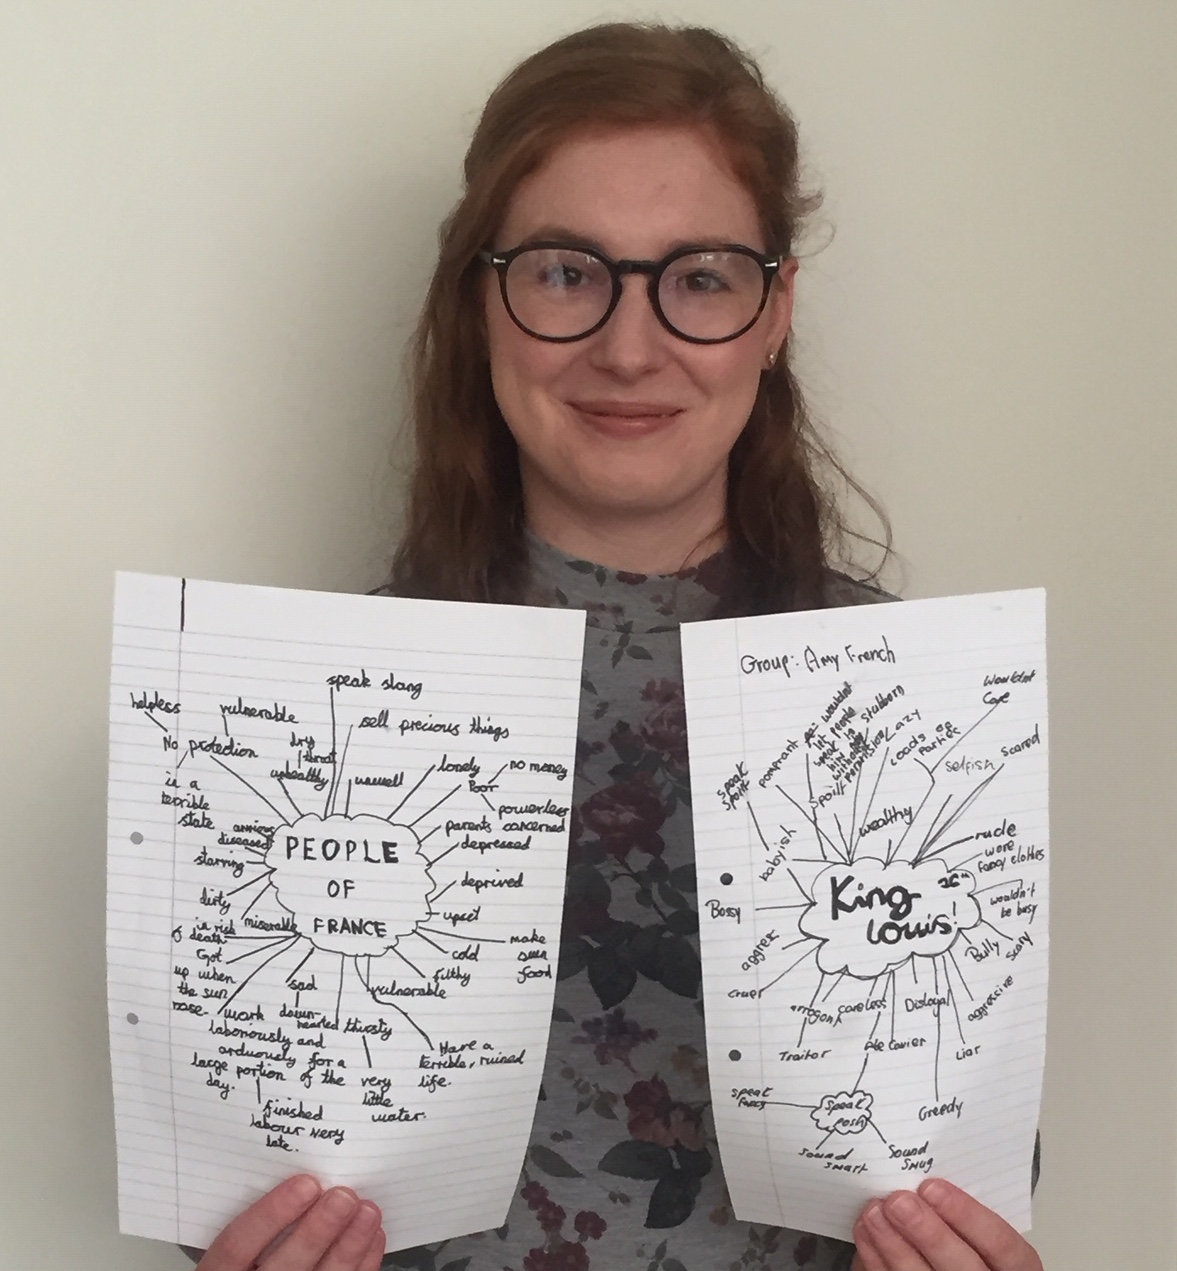 speak slang
helpless
vulnerable
sell precious things
No protection
dry
throat
unhealthy
unwell
lonely
no money
Poor
powerless
is a
terrible
state
parents concerned
anxious
diseased
depressed
starving
PEOPLE
OF
FRANCE
deprived
dirty
upset
miserable
in risk
of death
make
own
food
cold
filthy
Got
up when
the sun
rose.
sad
down-
hearted
vulnerable
thirsty
work
laboriously and
arduously for a
large portion of the
day.
very
little
water.
Have a
terrible, ruined
life.
finished
labour very
late.
Group: Amy French
wouldn't
let people
speak to
him
without
permission
stubborn
Lazy
Loads of
parties
wouldn't
Care
selfish
scared
speak
spoilt
wealthy
babyish
rude
wore
fancy clothes
King
Louis!
wouldn't
be busy
Bossy
Bully
scary
cruel
careless
Disloyal
aggressive
Traitor
Ate cavier
Liar
speak
fancy
Speak
Posh
Greedy
Sound
smart
Sound
Smug